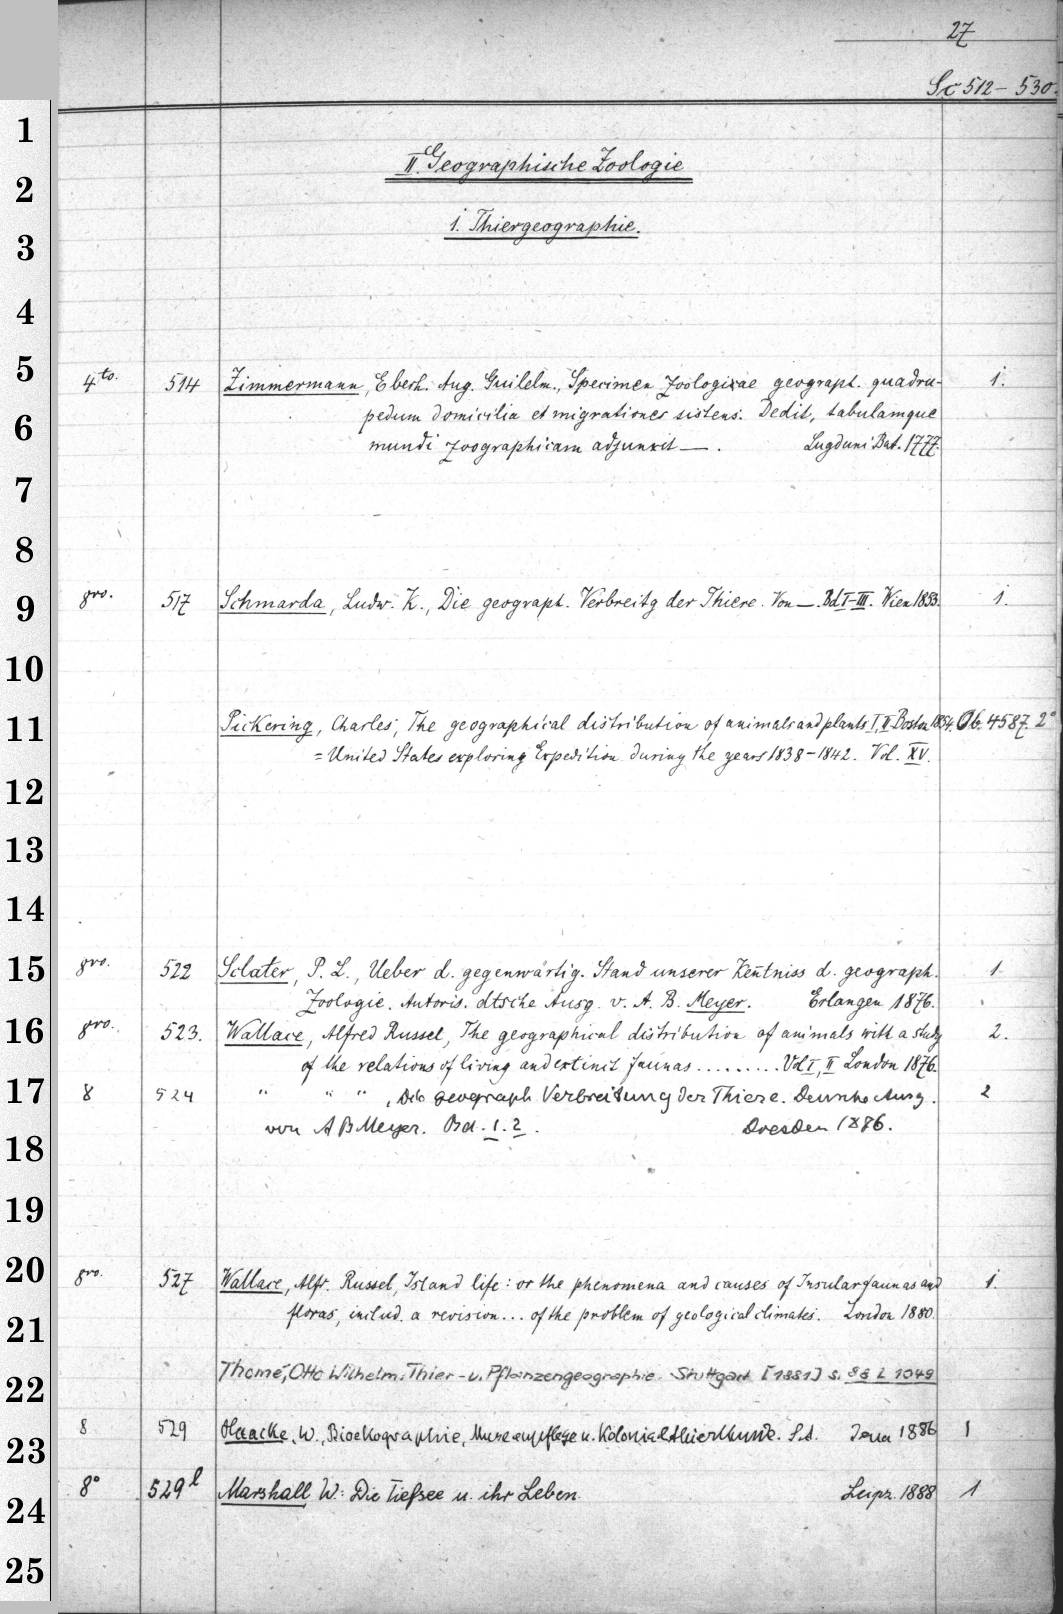 27
Sc 512 – 530.
1
II. Geographische Zoologie
2
1. Thiergeographie.
3
4
5
4to. 514 Zimmermann, Eberh. Aug. Guilelm., Specimen Zoologicae geograph. quadru- 1.
pedum domicilia et migrationes sistens. Dedit, tabulamque
6
mundi zoographicam adjunxit —. Lugduni Bat. 1777.
7
8
9
gro. 517 Schmarda, Ludw. K., Die geograph. Verbreitg der Thiere. Von —. Bd I–III. Wien 1853. 1.
10
11
Pickering, Charles, The geographical distribution of animals and plants I, II Boston 1854. Ob. 4587. 2°
= United States exploring Expedition during the years 1838–1842. Vol. XV.
12
13
14
15
gro. 522 Sclater, P. L., Ueber d. gegenwärtig. Stand unserer Ken̄tniss d. geograph. 1
Zoologie. Autoris. dtsche Ausg. v. A. B. Meyer. Erlangen 1876.
16
gro. 523. Wallace, Alfred Russel, The geographical distribution of animals with a study 2.
of the relations of living and extinct faunas ......... Vol I, II London 1876.
17
8 524 " " ", Die geograph Verbreitung der Thiere. Deutsche Ausg. 2
von A B Meyer. Bd. 1. 2. Dresden 1886.
18
19
20
gro. 527 Wallace, Alfr. Russel, Island life: or the phenomena and causes of Insular faunas and 1.
floras, includ. a revision... of the problem of geological climates. London 1880.
21
22
Thomé, Otto Wilhelm: Thier- u. Pflanzengeographie. Stuttgart [1881] s. 1049
23
8 529 Haacke, W., Bioekographie, Museenpflege u. Kolonialthierkunde. S.A. Jena 1886 1
24
8° 529l Marshall W: Die Tiefsee u. ihr Leben. Leipz. 1888 1
25